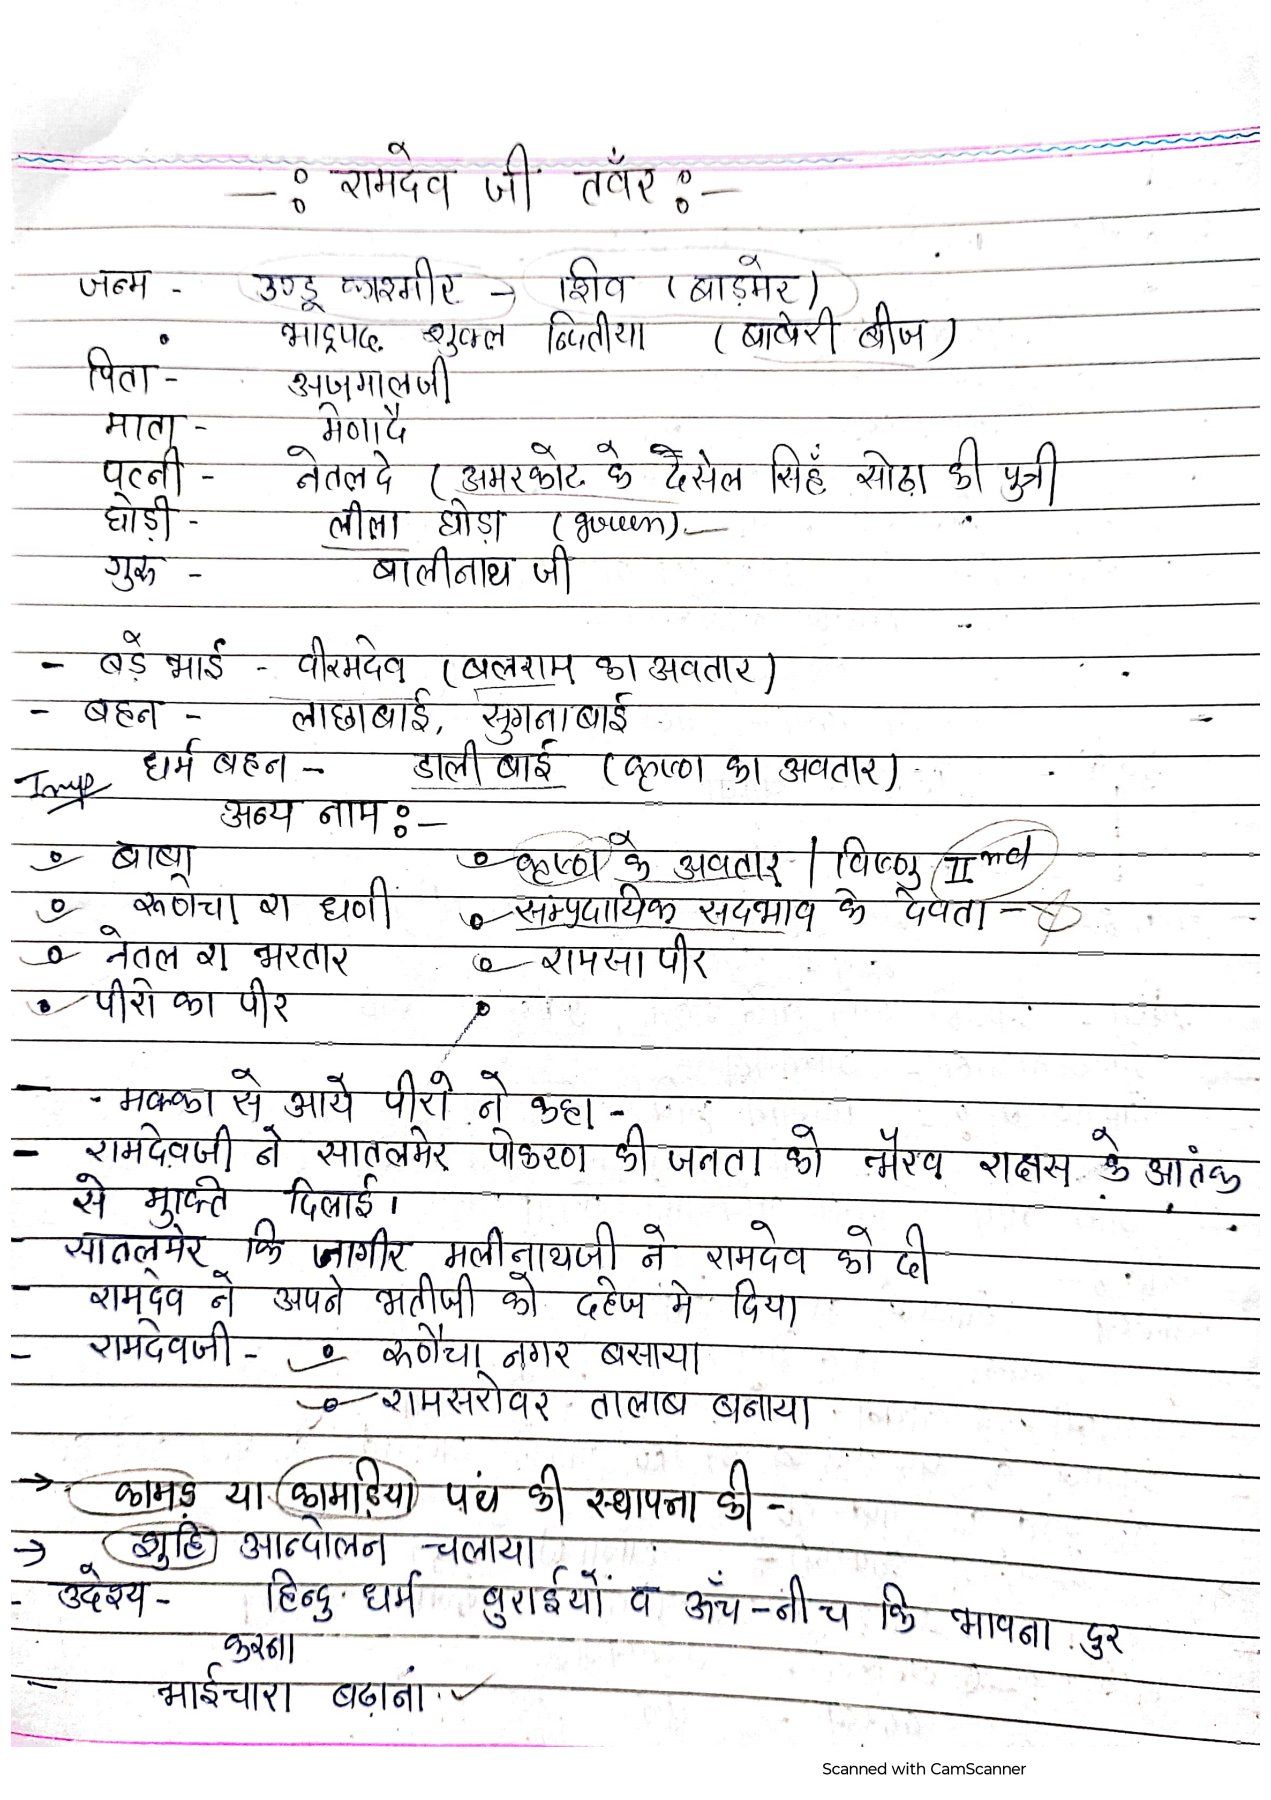 —: रामदेव जी तवँर :—
जन्म - उण्डू काश्मीर → शिव (बाड़मेर)
भाद्रपद शुक्ल द्वितीया (बाबेरी बीज)
पिता - अजमालजी
माता - मेणादै
पत्नी - नेतलदे (अमरकोट के दैसेल सिहँ सोढ़ा की पुत्री
घोड़ी - लीला घोड़ा (green) —
गुरु - बालीनाथ जी
- बड़े भाई - वीरमदेव (बलराम का अवतार)
- बहन - लाछाबाई, सुगनाबाई
धर्म बहन - डाली बाई (कृष्ण का अवतार)
Imp
अन्य नाम :—
बाबा कृष्ण के अवतार / विष्णु IInd
रूणेचा रा धणी सम्प्रदायिक सदभाव के देवता -
नेतल रा भरतार रामसा पीर
पीरो का पीर
- मक्का से आये पीरो ने कहा -
- रामदेवजी ने सातलमेर पोकरण की जनता को भैरव राक्षस के आतंक
से मुक्ति दिलाई।
- सातलमेर कि जागीर मलीनाथजी ने रामदेव को दी
- रामदेव ने अपने भतीजी को दहेज मे दिया
- रामदेवजी - रूणैचा नगर बसाया
रामसरोवर तालाब बनाया
→ कामड़ या कामड़िया पंथ की स्थापना की -
→ शुद्धि आन्दोलन चलाया
- उदेश्य - हिन्दु धर्म बुराईयों व ऊँच-नीच कि भावना दुर
करना
- भाईचारा बढ़ाना
Scanned with CamScanner